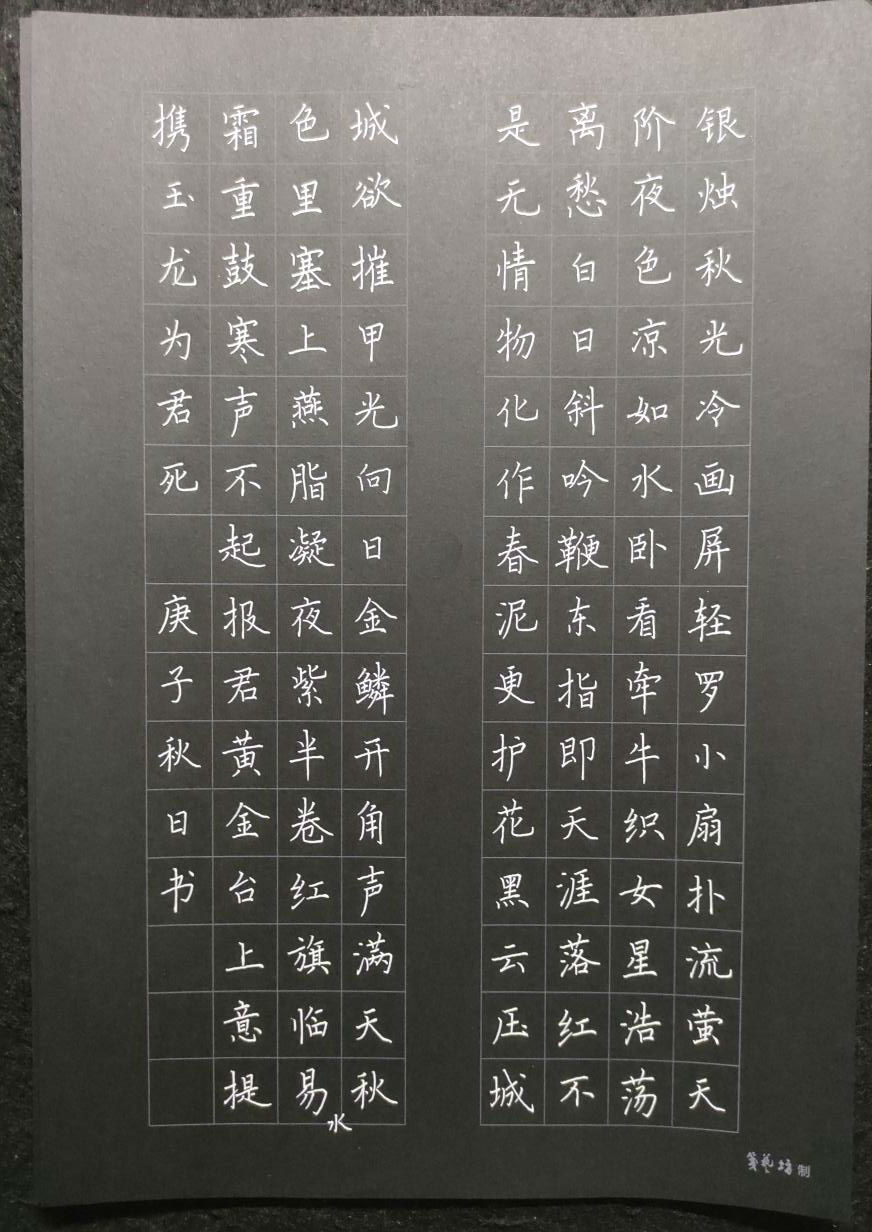 银烛秋光冷画屏轻罗小扇扑流萤天
阶夜色凉如水卧看牵牛织女星浩荡
离愁白日斜吟鞭东指即天涯落红不
是无情物化作春泥更护花黑云压城
城欲摧甲光向日金鳞开角声满天秋
色里塞上燕脂凝夜紫半卷红旗临易水
霜重鼓寒声不起报君黄金台上意提
携玉龙为君死 庚子秋日书
笺艺坊制